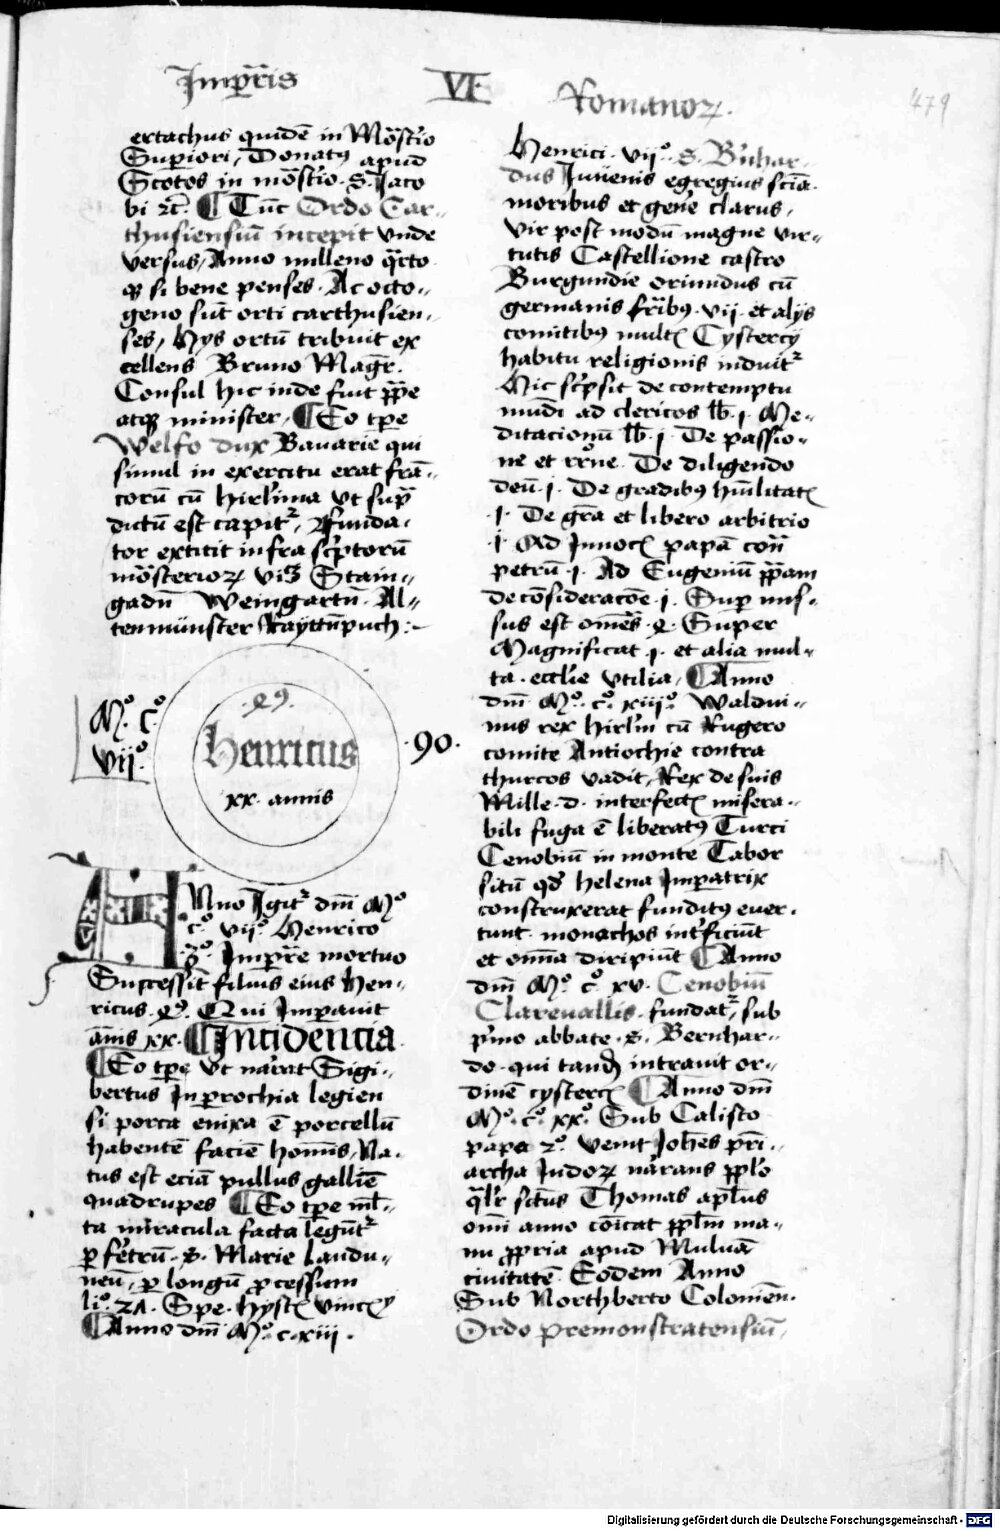 Imꝑr̄is
VI
Romanoꝝ.
479
ertachus quidē in Mōst'io
Suꝑiori, Donatꝰ apud
Scotos in mōst'io. S. Jaco
bi ⁊c̄. ¶ Tūc Ordo Car-
thusiensiū incepit vnde
versus, Anno milleno q̄rto
qꝫ si bene penses. Ac octo-
geno sūt orti carthusien-
ses, Hys ortū tribuit ex
cellens Bruno Magr̄.
Consul hic inde fuit pp̄e
atqꝫ minister, ¶ Eo tꝑe
Welfo dux Bauarie qui
simul in exercitu erat frā-
corū cū hirl'ima vt sup̄
dictū est capit᷑, Funda-
tor extitit infra sc'ptorū
mōsterioꝝ viꝫ Stain-
gadū Weingartū. Al-
tenmünster Rayttūpuch:-
Mº. cº.
vijº.
.4ꝰ.
Henricus
xx. annis
.90.
ANno Igit᷑ dm̄ Mº
cº. vijº. Henrico
.3º. Imꝑr̄e mortuo
Successit filius eius Hen-
ricus. 4ꝰ. Qui Imꝑauit
ān̄is xx. ¶ Incidencia
¶ Eo tꝑe vt nar̄at Sigi-
bertus In ꝑrochia legien
si porca enixa ē porcellū
habentē faciē homīs, Na-
tus est eciā pullus galliē
quadrupes ¶ Eo tꝑe ml̄-
ta miracula facta legūt᷑
ꝑ fe'trū. S. Marie Laudu-
neū, ꝑ longū ꝓcessum
li. 27. Spe. hyst. vincē
¶ Anno dm̄ Mº. c. xiij.
Henrici. vijº. S. B'nhar-
dus Juuenis egregius sciā.
moribus et gen'e clarus,
vir post modū magne vir-
tutis Castellione castro
Burgundie oriundus cū
germanis fr̄ibꝰ. vij. et alijs
comitibꝰ mult Cystercij
habitu religionis induit᷑
Hic sc'psit de contemptu
mūdi ad clericos lb̄. j. Me-
ditacionū lb̄. j. De passio-
ne et rr̄one. De diligendo
deū. j. De gradibꝰ hūilitat
.j. De gr̄a et libero arbitrio
.j. Ad Innoc papā con̄
petrū. j. Ad Eugeniū pp̄am
de cōsideracōe. j. Suꝑ mis-
sus est om̄es. 4. Super
Magnificat. j. et alia mul-
ta. eccl'ie vtilia, ¶ Anno
dm̄ Mº. cº. xiijº. Waldui-
nus rex hirl'm cū Rugero
comite Antiochie contra
thurcos vadit, Rex de suis
Mille. d. interfect misera-
bili fuga ē liberatꝰ Turci
Cenobiū in monte Tabor
sitū qd̄ helena Imꝑatrix
construxerat funditꝰ euer-
tunt. monachos int'ficiūt
et om̄ia diripiūt ¶ Anno
dm̄ Mº. cº. xv. Cenobiū
Clareuallis. fundat᷑, sub
p'mo abbate. S. Bernhar-
do. qui tandē intrauit or-
dinē cysterc ¶ Anno dm̄
Mº. cº. xxº. Sub Calisto
papa 2º. venit Joh̄es pr̄i-
archa Indoꝝ nar̄ans pp̄lo
qͣl'r sc̄tus Thomas apl̄us
om̄i anno cōicat pp̄lm ma-
nu ꝓpria apud Muluā
ciuitatē. Eodem Anno
Sub Northberto Colonien.
Ordo premonstratensiū,
Digitalisierung gefördert durch die Deutsche Forschungsgemeinschaft - DFG